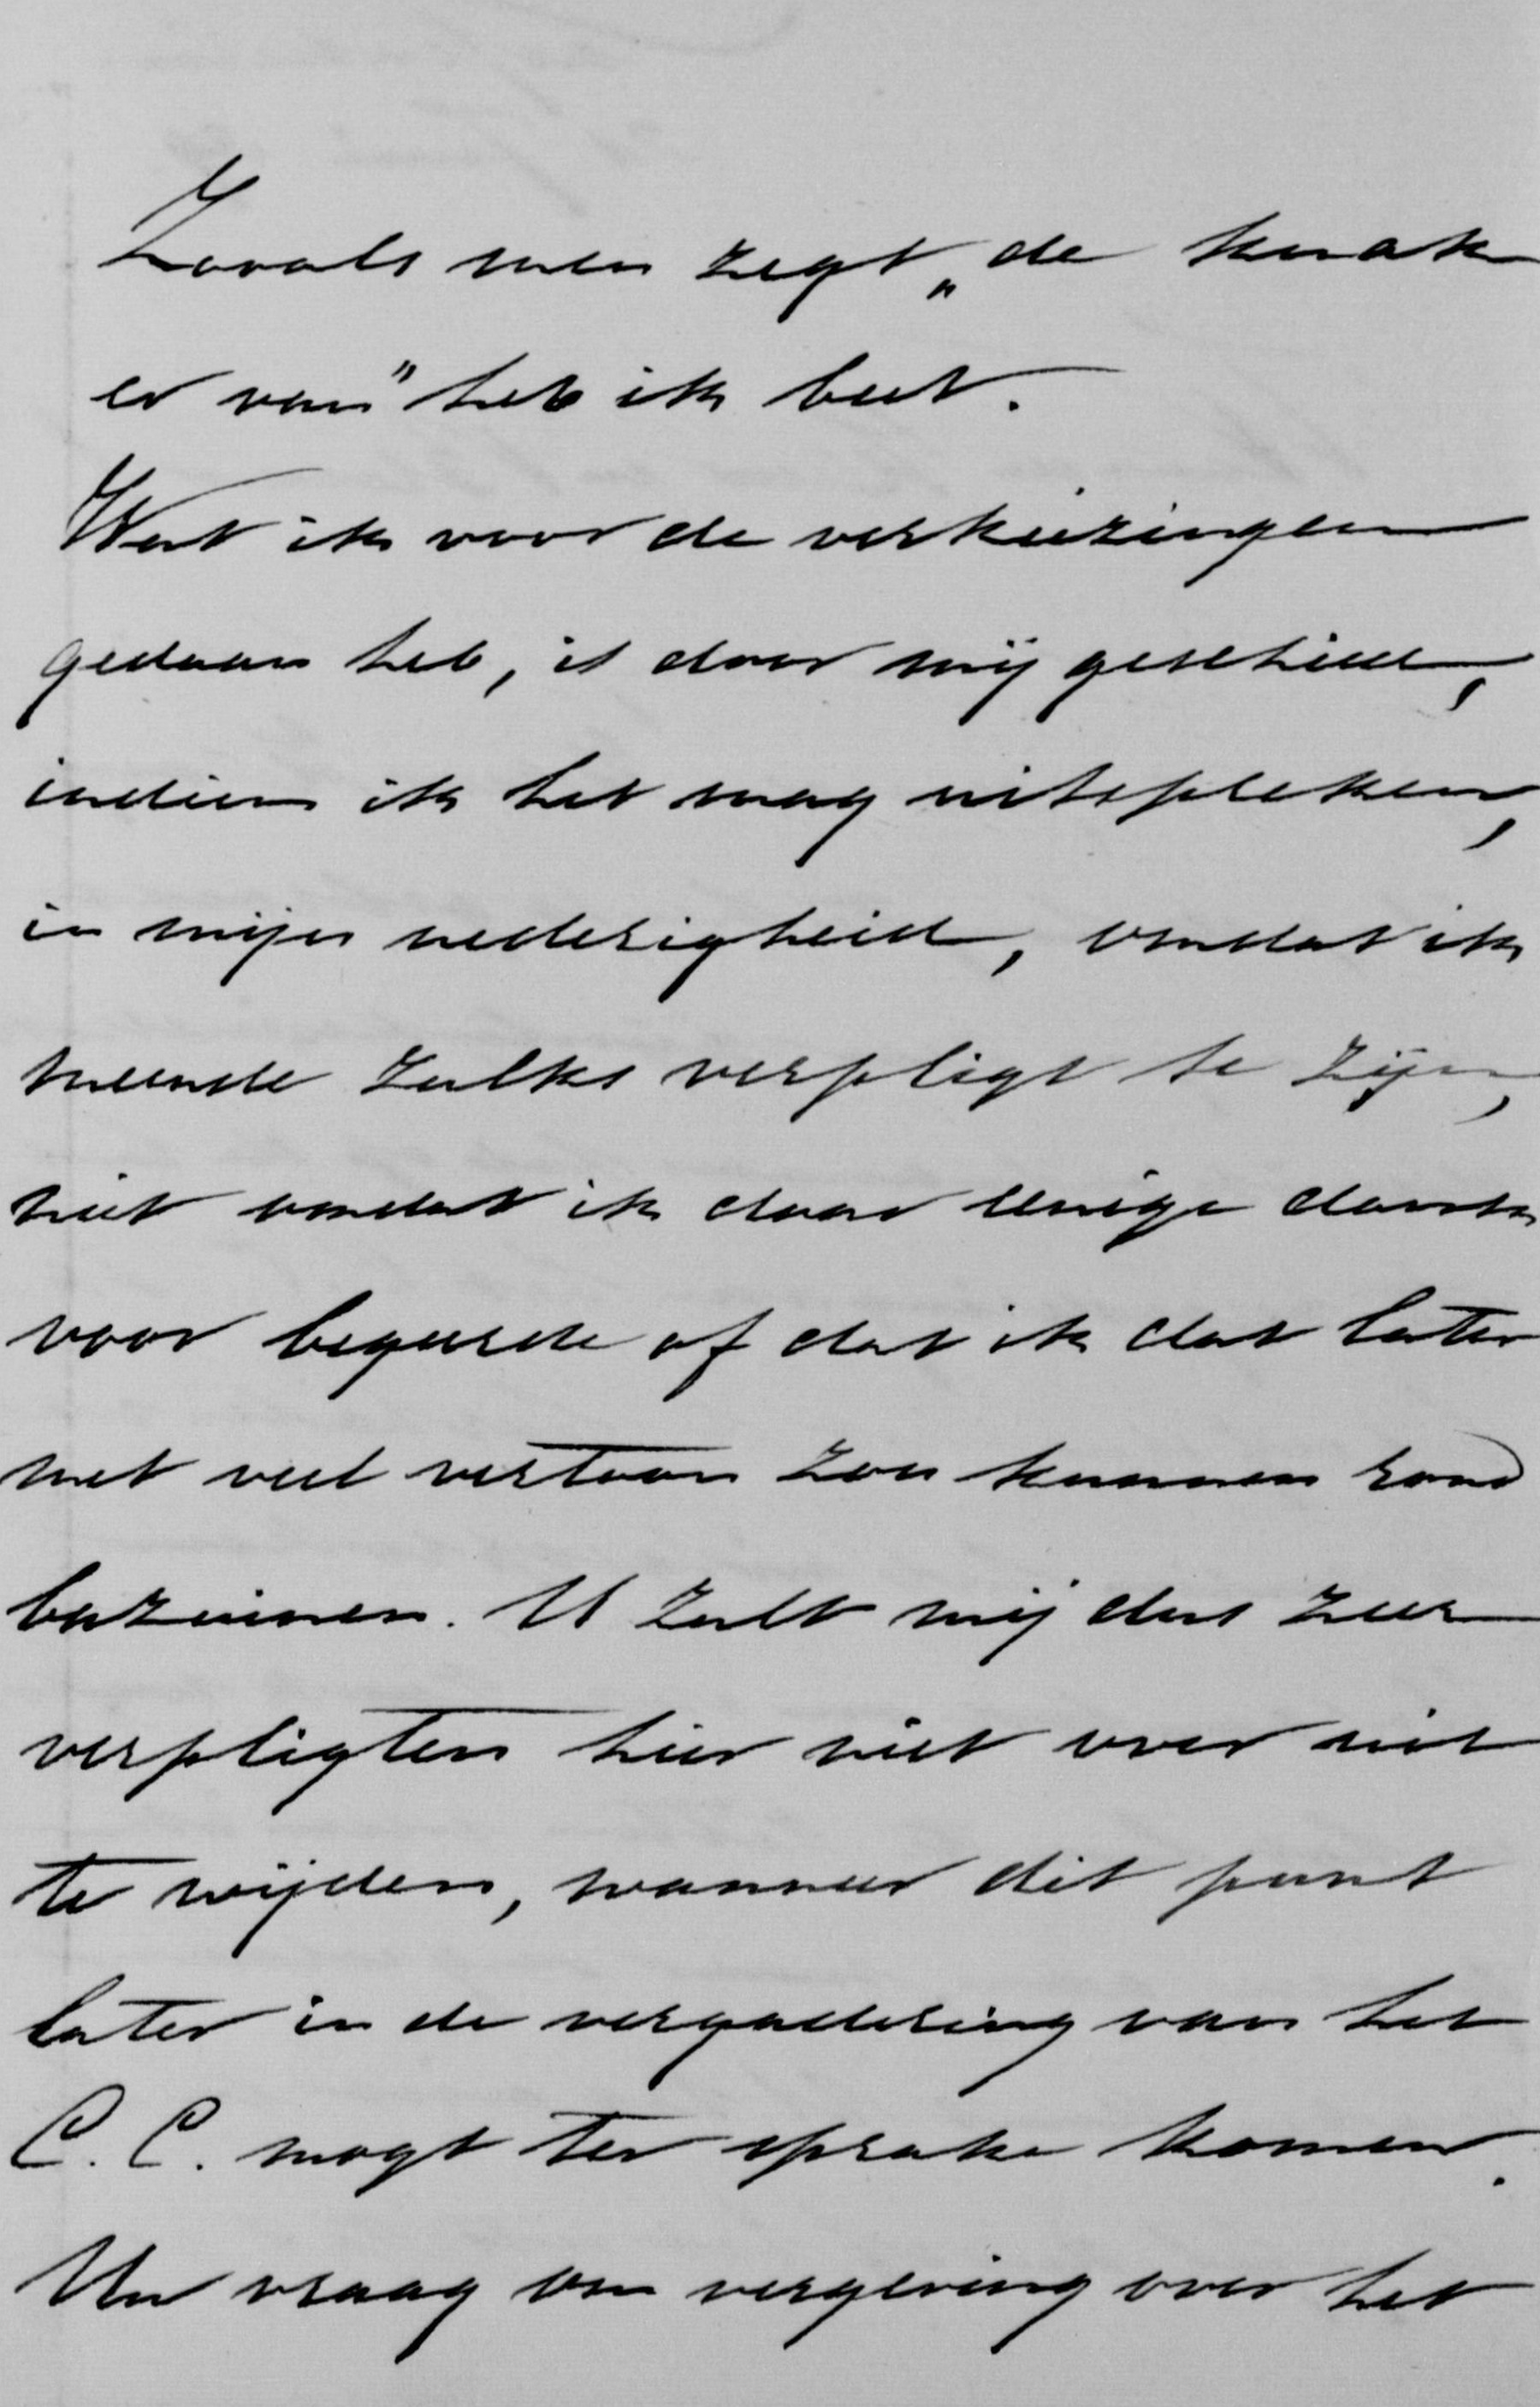 Zooals men zegt „de knak
er van” heb ik beet.
Wat ik voor de verkiezingen
gedaan heb, is door mij geschied,
indien ik het mag uitspreken,
in mijn nederigheid, omdat ik
meende zulks verpligt te zijn,
niet omdat ik daar eenige dank
voor begeerde of dat ik dat later
met veel vertoon zou kunnen rond
bazuinen. U zult mij dus zeer
verpligten hier niet over uit
te wijden, wanneer dit punt
later in de vergadering van het
C. C. mogt ter sprake komen.
Uw vraag om vergeving over het